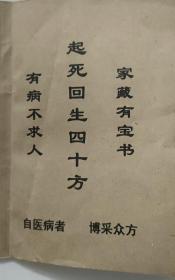 家藏有宝书
起死回生四十方
有病不求人
自医病者 博采众方